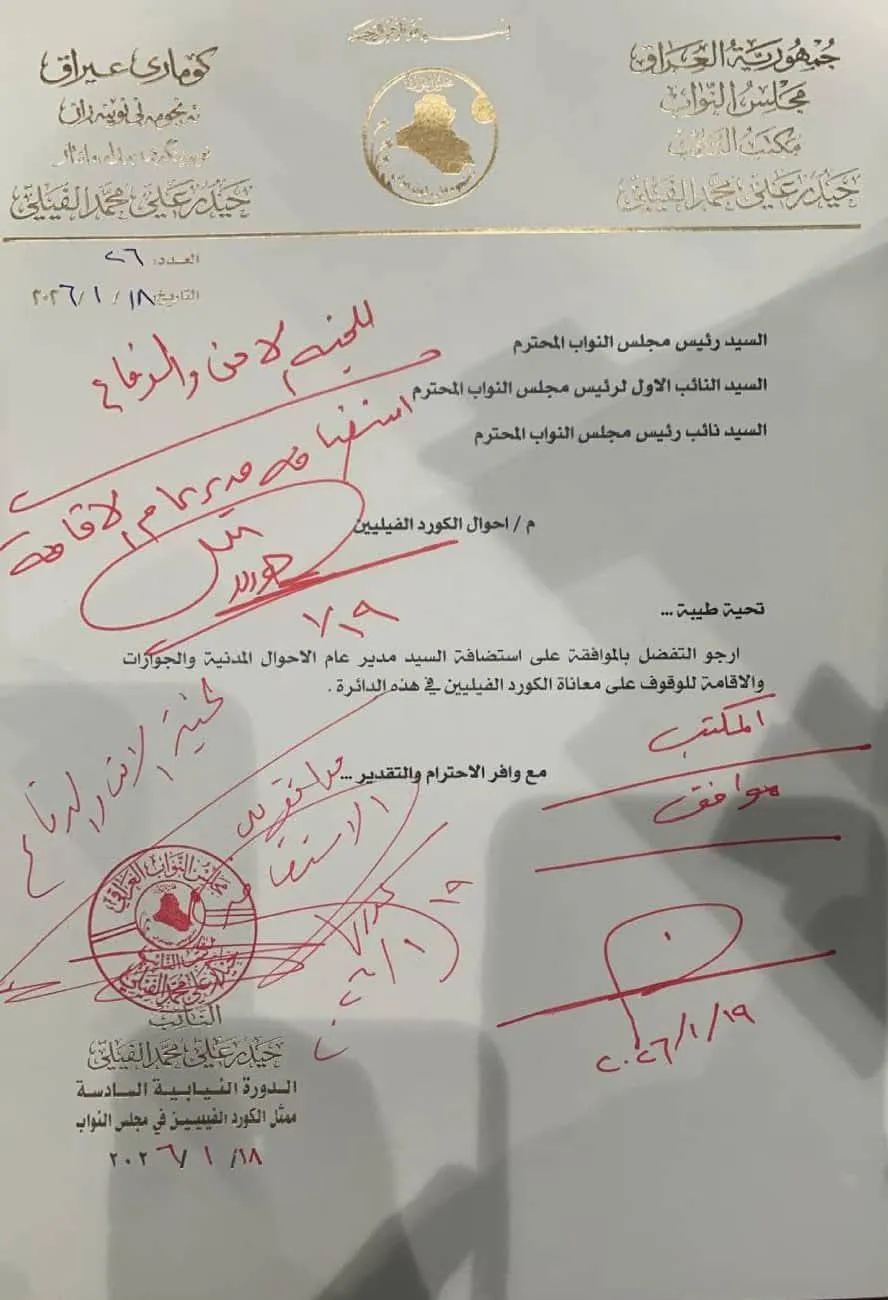 جمهورية العراق
مجلس النواب
مكتب النائب
حيدر علي محمد الفيلي
كوماری عیراق
حيدر علي محمد الفيلي
العدد: ٢٦
التاريخ: ١٨ / ١ / ٢٠٢٦
السيد رئيس مجلس النواب المحترم
السيد النائب الاول لرئيس مجلس النواب المحترم
السيد نائب رئيس مجلس النواب المحترم
للجنة الامن والدفاع
استضافة مدير عام الاقامة
م / احوال الكورد الفيليين
تحية طيبة ...
ارجو التفضل بالموافقة على استضافة السيد مدير عام الاحوال المدنية والجوازات
والاقامة للوقوف على معاناة الكورد الفيليين في هذه الدائرة .
مع وافر الاحترام والتقدير ...
المكتب
موافق
٢٠٢٦/١/١٩
لجنة الامن والدفاع
مجلس النواب العراقي
حيدر علي محمد الفيلي
النائب
حيدر علي محمد الفيلي
الدورة النيابية السادسة
ممثل الكورد الفيليين في مجلس النواب
١٨/ ١ /٢٠٢٦